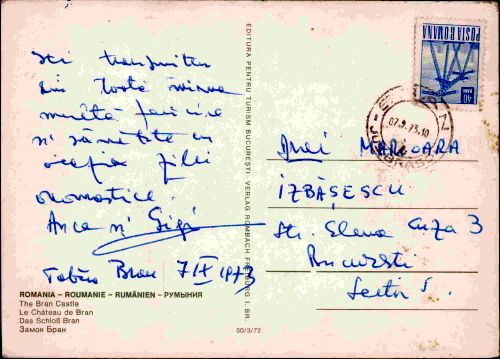 Iti transmitem
din toată inima
multă fericire
și sănătate cu
ocazia zilei
onomastice.
Anca și Gigi
Tabăra Bran 7 IX 1973
ROMANIA – ROUMANIE – RUMÄNIEN – РУМЫНИЯ
The Bran Castle
Le Château de Bran
Das Schloß Bran
Замок Бран
EDITURA PENTRU TURISM BUCUREȘTI VERLAG ROMBACH FREIBURG I. BR.
50/3/72
POSTA ROMANA
40 BANI
07.9.73.10
JUD. BRASOV
Dnei MARIOARA
IZBĂȘESCU
Str. Elena Cuza 3
București
Sector 5.